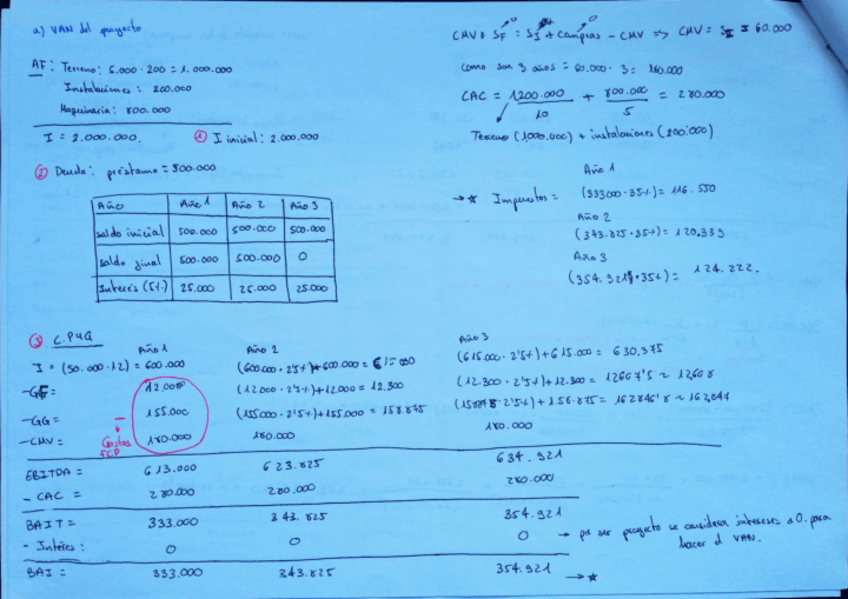 a) VAN del proyecto
AF: Terreno: 5.000 · 200 = 1.000.000
Instalaciones: 200.000
Maquinaria: 800.000
I = 2.000.000. ① I inicial: 2.000.000
② Deuda: préstamo = 500.000
Año Año 1 Año 2 Año 3
saldo inicial 500.000 500.000 500.000
saldo final 500.000 500.000 0
Interés (5%) 25.000 25.000 25.000
CMV + SF = SI + Compras - CMV => CMV = SI = 60.000
0 0
como son 3 años = 60.000 · 3 = 180.000
CAC = 1200.000 / 10 + 800.000 / 5 = 280.000
Terreno (1.000.000) + instalaciones (200.000)
→ * Impuestos =
Año 1
(333000 · 35%) = 116.550
Año 2
(343.825 · 35%) = 120.339
Año 3
(354.921 · 35%) = 124.222.
③ C. PYG
Año 1 Año 2 Año 3
I = (50.000 · 12) = 600.000 (600.000 · 2'5%) + 600.000 = 615.000 (615.000 · 2'5%) + 615.000 = 630.375
-GF= 12.000 (12.000 · 2'5%) + 12.000 = 12.300 (12.300 · 2'5%) + 12.300 = 12607'5 ~ 12608
-GG= 155.000 (155.000 · 2'5%) + 155.000 = 158.875 (158875 · 2'5%) + 158.875 = 162846'8 ~ 162.847
-CMV = 180.000 180.000 180.000
Gastos FCP
EBITDA = 613.000 623.825 634.921
- CAC = 280.000 280.000 280.000
BAIT = 333.000 343.825 354.921
- Interes: 0 0 0 → por ser proyecto se considera intereses a 0. para
hacer el VAN.
BAI = 333.000 343.825 354.921 → *